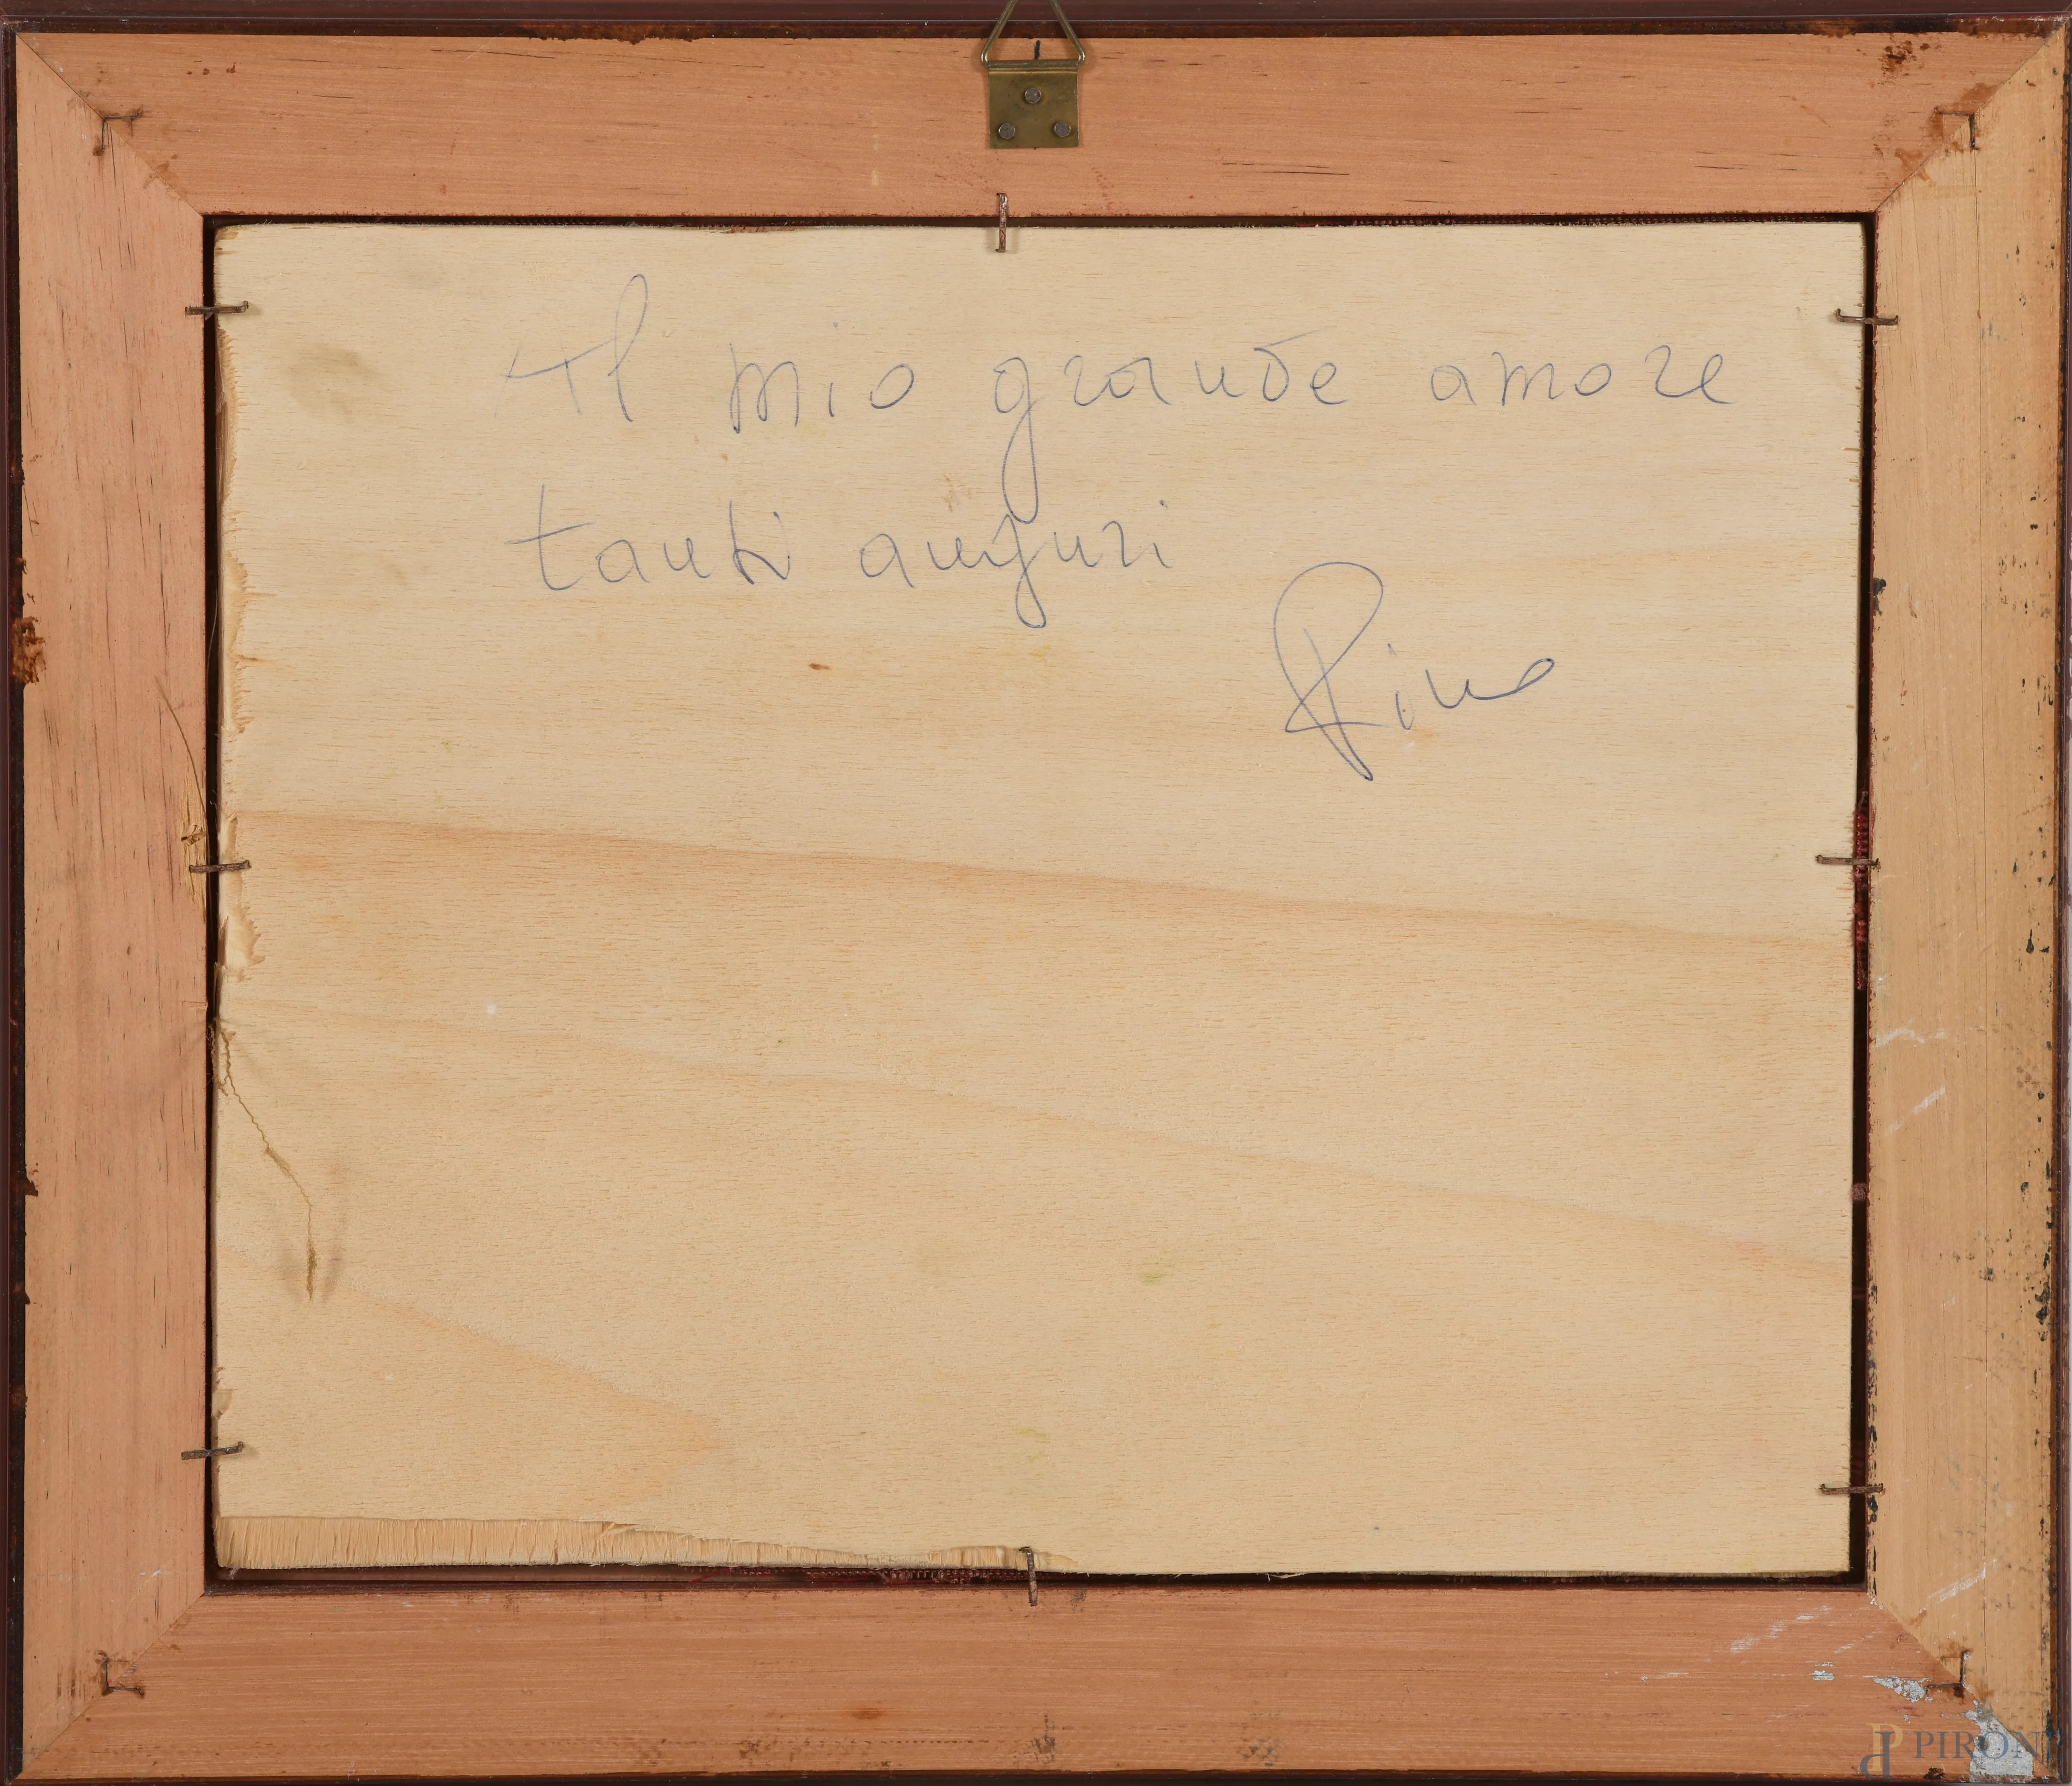 Al mio grande amore
tanti auguri
Rino
PIRONI